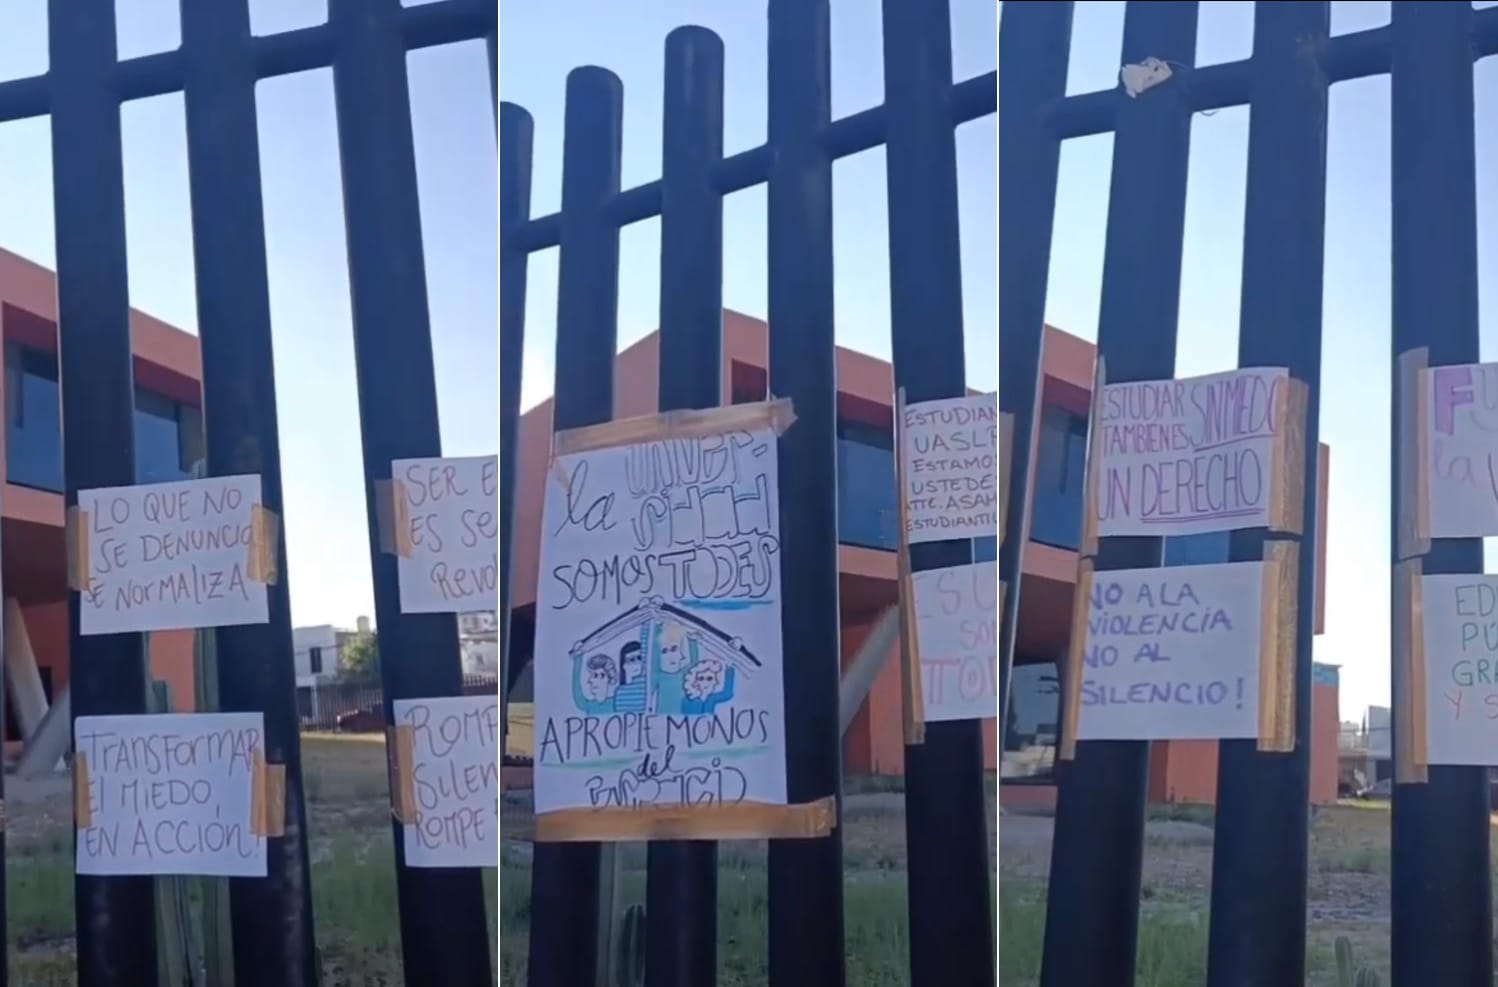 LO QUE NO
SE DENUNCIA
SE NORMALIZA
TRANSFORMAR
El MIEDO
EN ACCIÓN!
SER E
ES SE
REVO
ROMP
SILEN
ROMPE
la UNIVER-
SIDAD
SOMOS TODES
APROPIÉMONOS
del
ESTUDIAN
UASLP
ESTAMO
USTEDE
ATTE. ASAM
ESTUDIANTIL
ESTUDIAR SIN MEDO
TAMBIEN ES
UN DERECHO
NO A LA
VIOLENCIA
NO AL
SILENCIO!
la
ED
PÚ
GRA
Y S